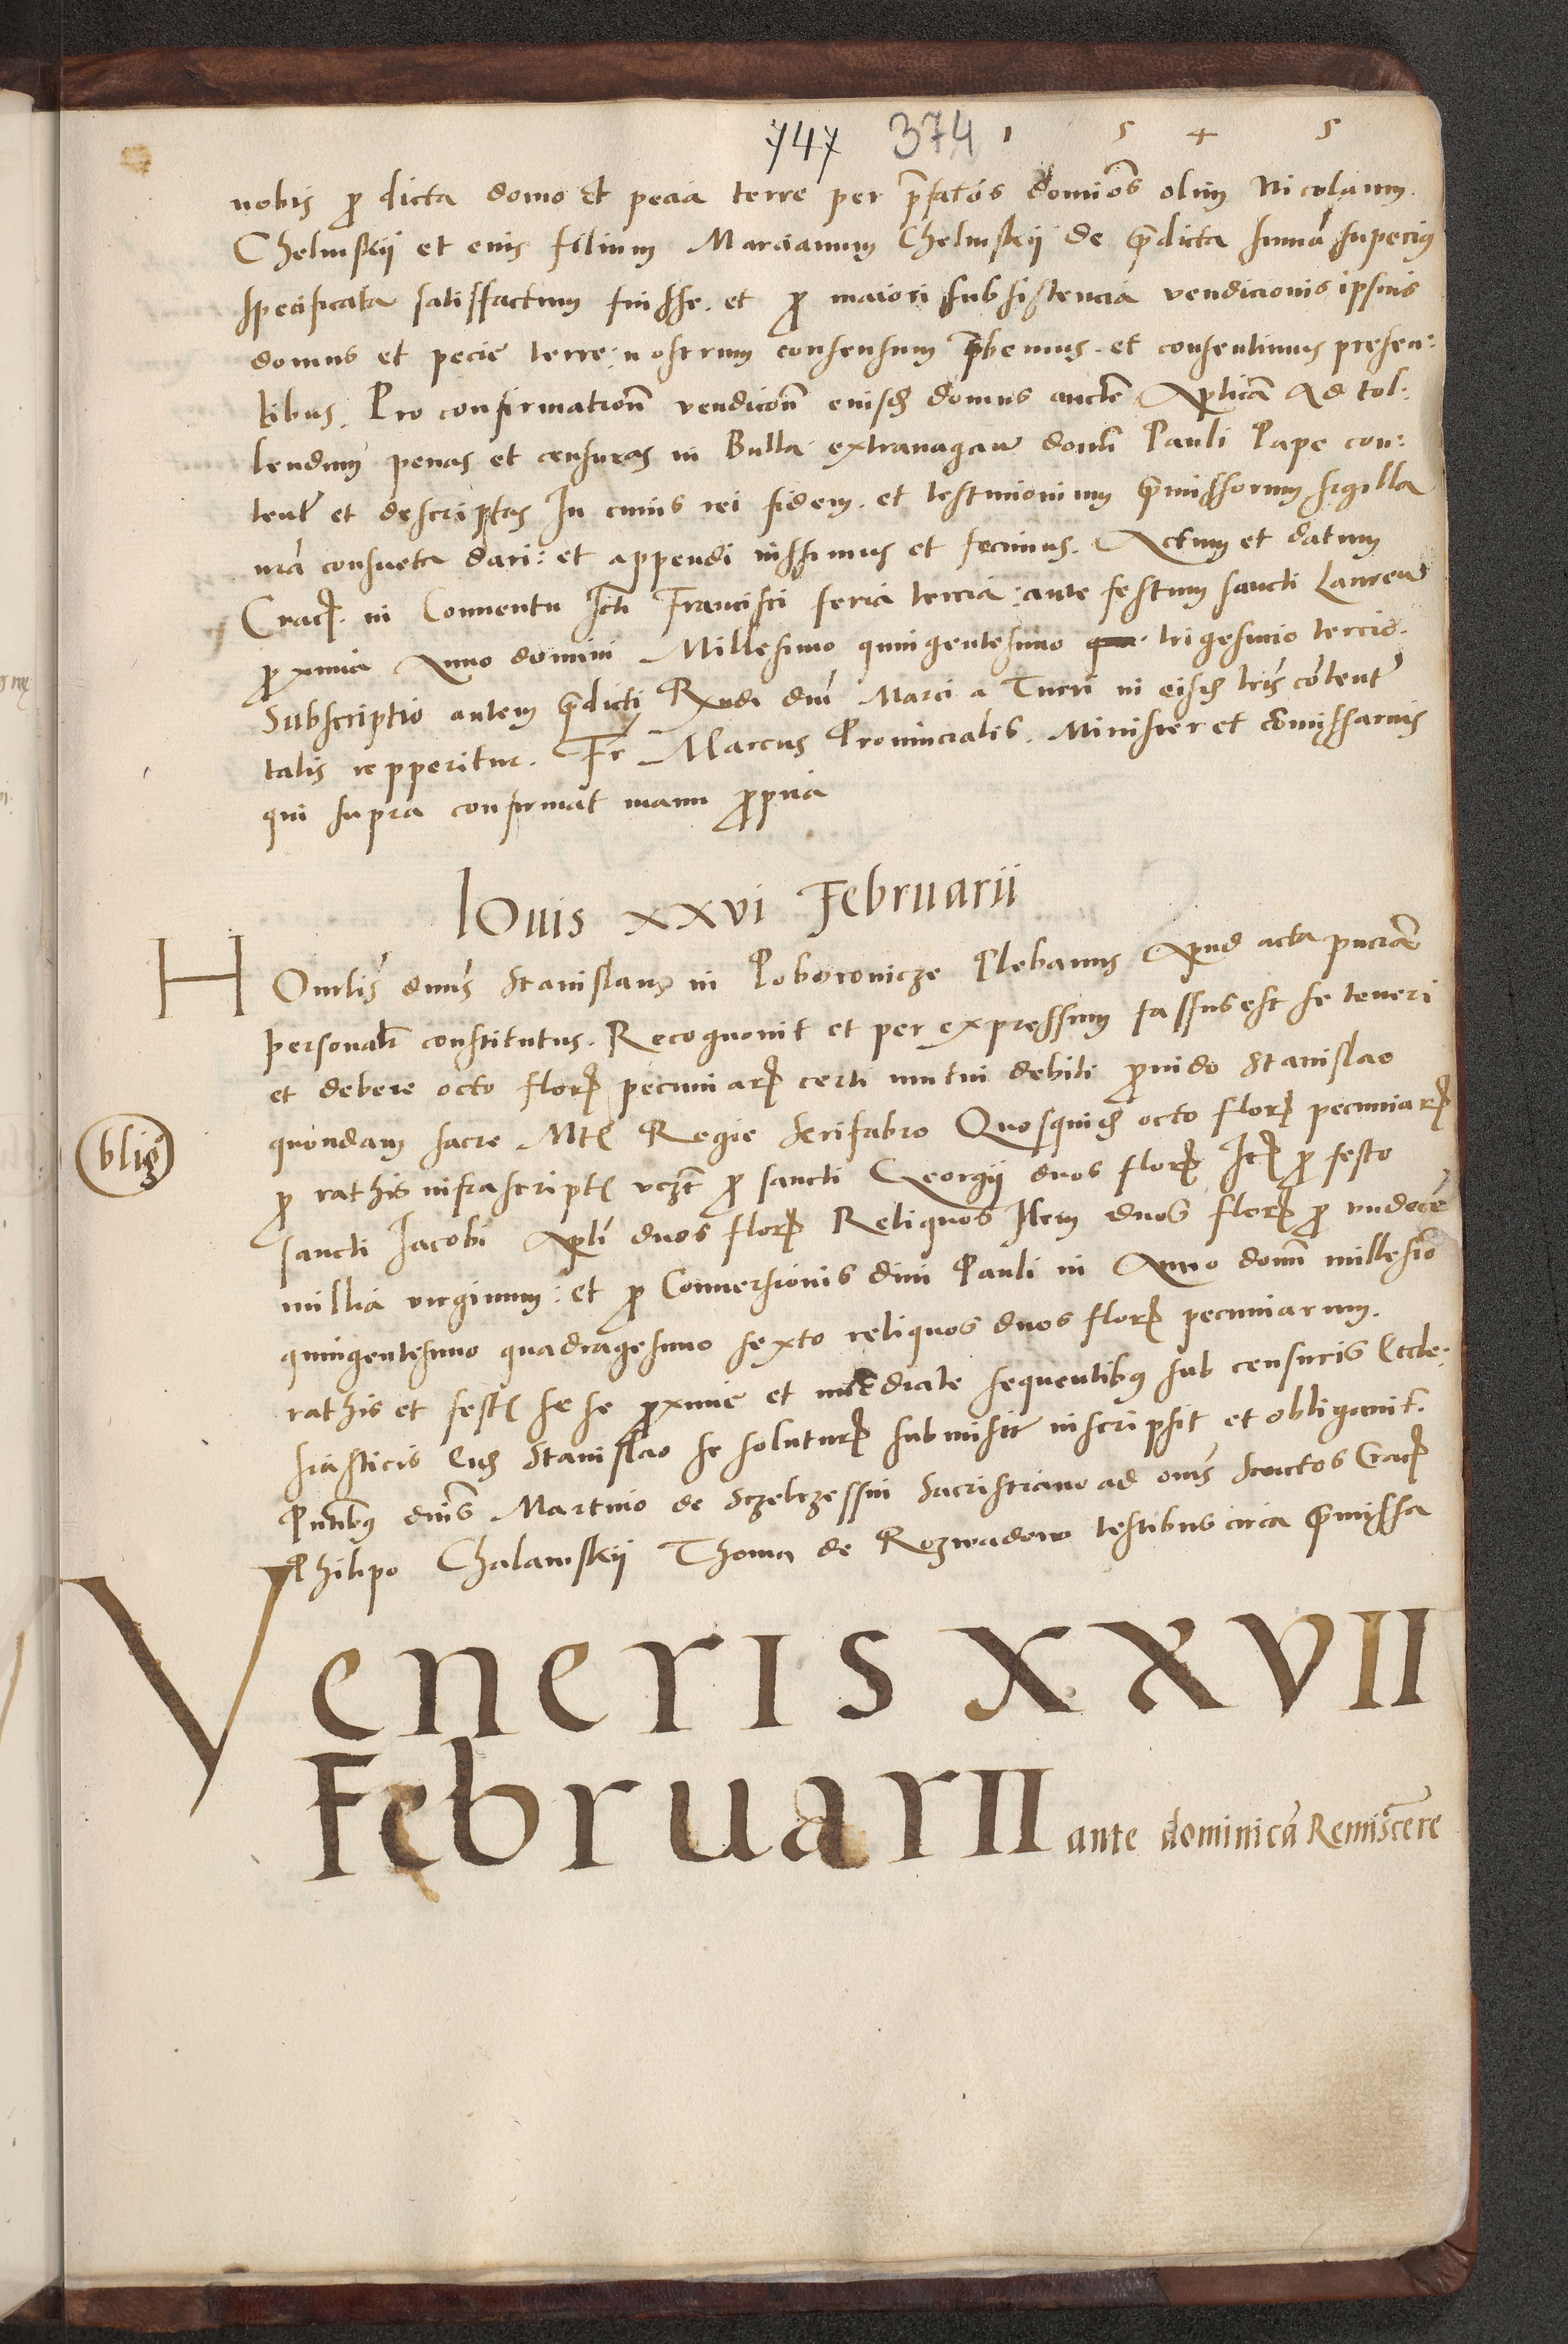 747 374 1 5 4 5
nobis ꝓ dicta domo et pecia terre per p̄fatos domiōs olim Nicolaum.
Chelmskij et eius filium Marcianum Chelmskij de p̄dicta sum̄a supecius
specificata satisffactum fuisse. et ꝓ maiori subsistencia vendicionis ipsius
domus et pecie terre: nostrum consensum p̄bemus. et consentimus presen:
tibus. Pro confirmation̄ vendicōn eiusd̄ domus aucte Aplica Ad tol:
lendum penas et censuras in Bulla extrauagan̄ domī Pauli Pape con:
tent̄ et descriptas In cuius rei fidem. et testimonium p̄missorum sigilla
nr̄a consueta dari: et appendi iussimus et fecimus. Actum et datum
Cracꝭ. in Conuentu scti Francisci feria tercia: ante festum sancti Laureń
ꝓxima Anno domini Millesimo quingentesimo trigesimo tercio.
Subscriptio autem p̄dicti Rndi dnī Marci a Turri in eisd̄ lrīs cōtent̄
talis repperitur. Fr̄ Marcus Prouincialis. Minister et comissarius
qui supra confirmat manu ꝓpria
Iouis xxvi Februarii
Honrlīs dnūs Stanislaus in Poborowicze Plebanus Apud acta pnciā
personalr̄ constitutus. Recognouit et per expressum fassus est se teneri
et debere octo florꝭ pecuniarꝭ certi mutui debiti ꝓuido Stanislao
quondam sacre Mtꝭ Regie Serifabro Quosquid̄ octo florꝭ pecuniarꝭ
bliḡ
ꝓ rathis infrascriptꝭ vꝫt ꝓ sancti Georgij duos florꝭ Itꝭ ꝓ festo
sancti Iacobi Apli duos florꝭ Reliquos Item duos florꝭ ꝓ vndecē
millia virginum: et ꝓ Conuersionis diui Pauli in Anno domī millesiō
quingentesimo quadragesimo sexto reliquos duos florꝭ pecuniarum.
rathis et festꝭ se se ꝓxime et imediate sequentibus sub censuris Eccle:
siasticis Eid̄ Stanislao se soluturꝭ submisit inscripsit et obligauit.
Pn̄tibus dnīs Martino de Sczebrzessin Sacristiano ad om̄s Sanctos Cracꝭ
Philipo Chalawskij Thoma de Rozwadow testibus circa p̄missa
Veneris XXVII
Februarii ante dominicā Reminiscere